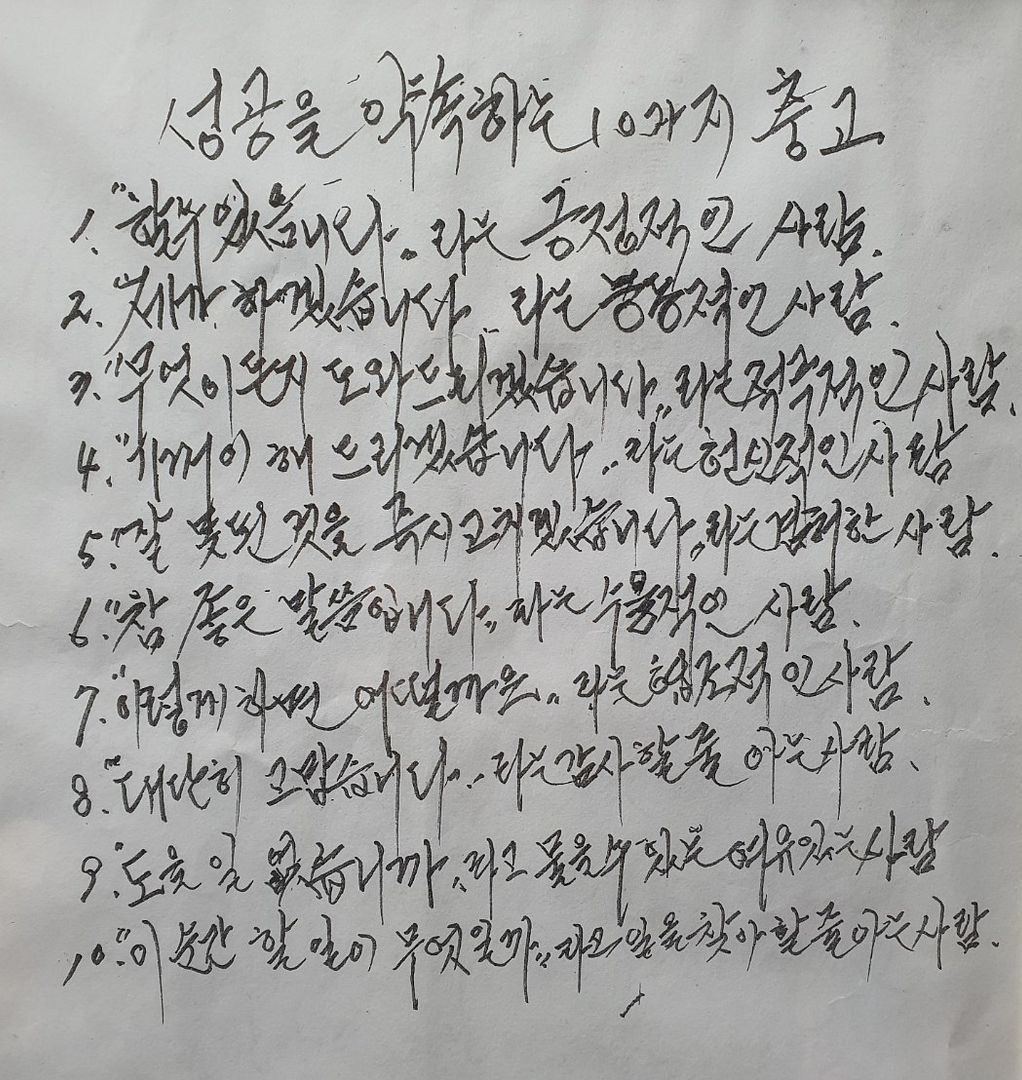 성공을 약속하는 10가지 충고
1. "할수 있습니다" 라는 긍정적인 사람.
2. "제가 하겠습니다" 라는 능동적인 사람.
3. "무엇이든지 도와 드리겠습니다" 라는 적극적인 사람.
4. "기꺼이 해 드리겠습니다" 라는 헌신적인 사람
5. "잘못된 것을 즉시 고치겠습니다" 라는 겸허한 사람.
6. "참 좋은 말씀입니다" 라는 수용적인 사람.
7. "이렇게 하면 어떨까요" 라는 협조적인 사람.
8. "대단히 고맙습니다" 라는 감사할 줄 아는 사람.
9. "도울 일 없습니까" 라고 물을 수 있는 여유있는 사람
10. "이 순간 할 일이 무엇일까" 라고 일을 찾아 할 줄 아는 사람.